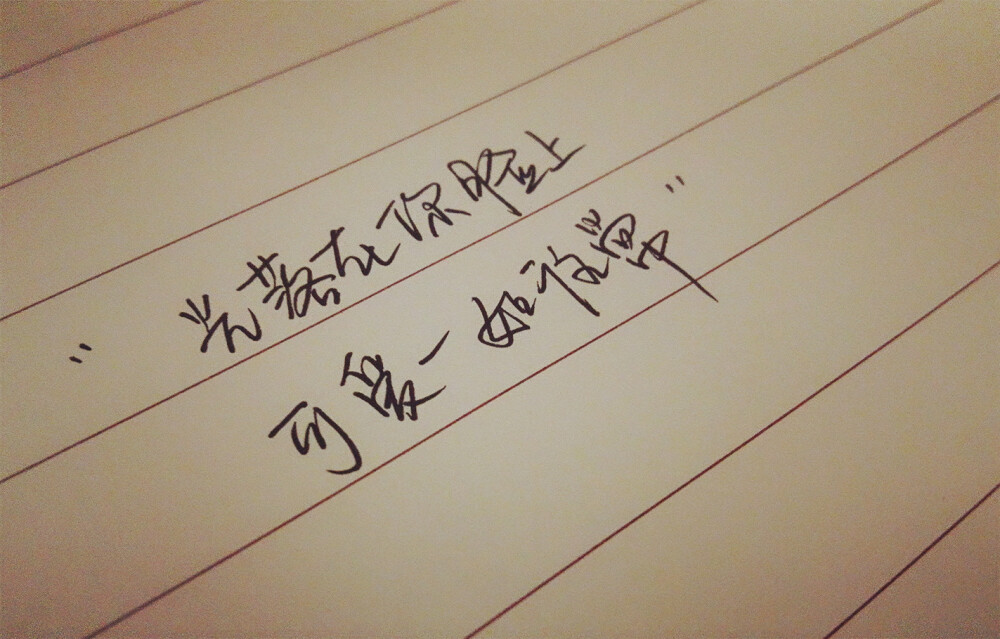 "光落在你脸上
可爱一如往常"